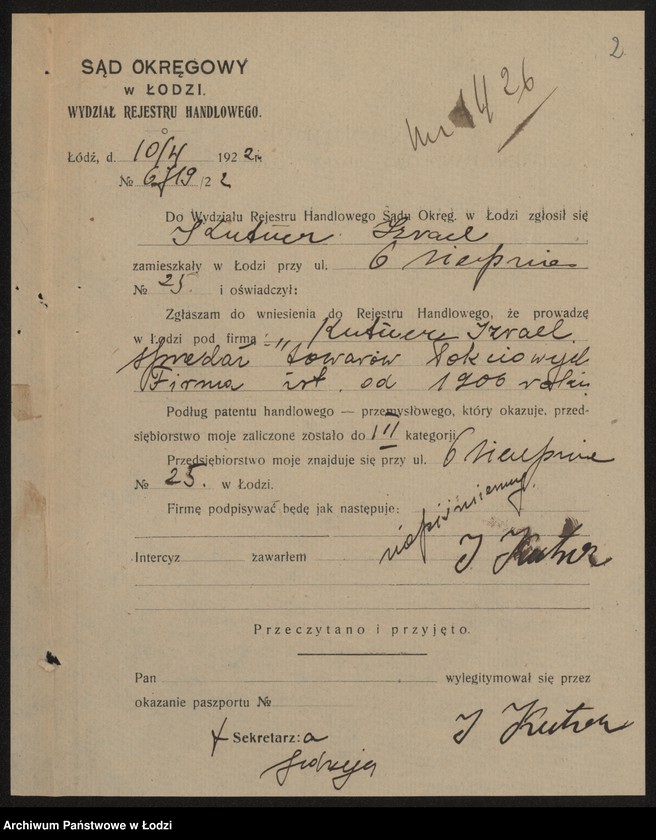 2
SĄD OKRĘGOWY
w ŁODZI.
WYDZIAŁ REJESTRU HANDLOWEGO.
Łódź, d. 10/4 1922 r.
№ 6719/22
Do Wydziału Rejestru Handlowego Sądu Okręg. w Łodzi zgłosił się
Izrael
zamieszkały w Łodzi przy ul. 6 Sierpnia
№ 25 i oświadczył:
Zgłaszam do wniesienia do Rejestru Handlowego, że prowadzę
w Łodzi pod firmą: „Kutner Izrael
sprzedaż towarów łokciowych
Firma ist. od 1900 roku
Podług patentu handlowego — przemysłowego, który okazuje, przed-
siębiorstwo moje zaliczone zostało do III kategorji
Przedsiębiorstwo moje znajduje się przy ul. 6 Sierpnia
№ 25. w Łodzi.
Firmę podpisywać będę jak następuje:
I Kutner
Intercyz zawarłem
Przeczytano i przyjęto.
Pan wylegitymował się przez
okazanie paszportu №
I Kutner
Sekretarz:
Archiwum Państwowe w Łodzi